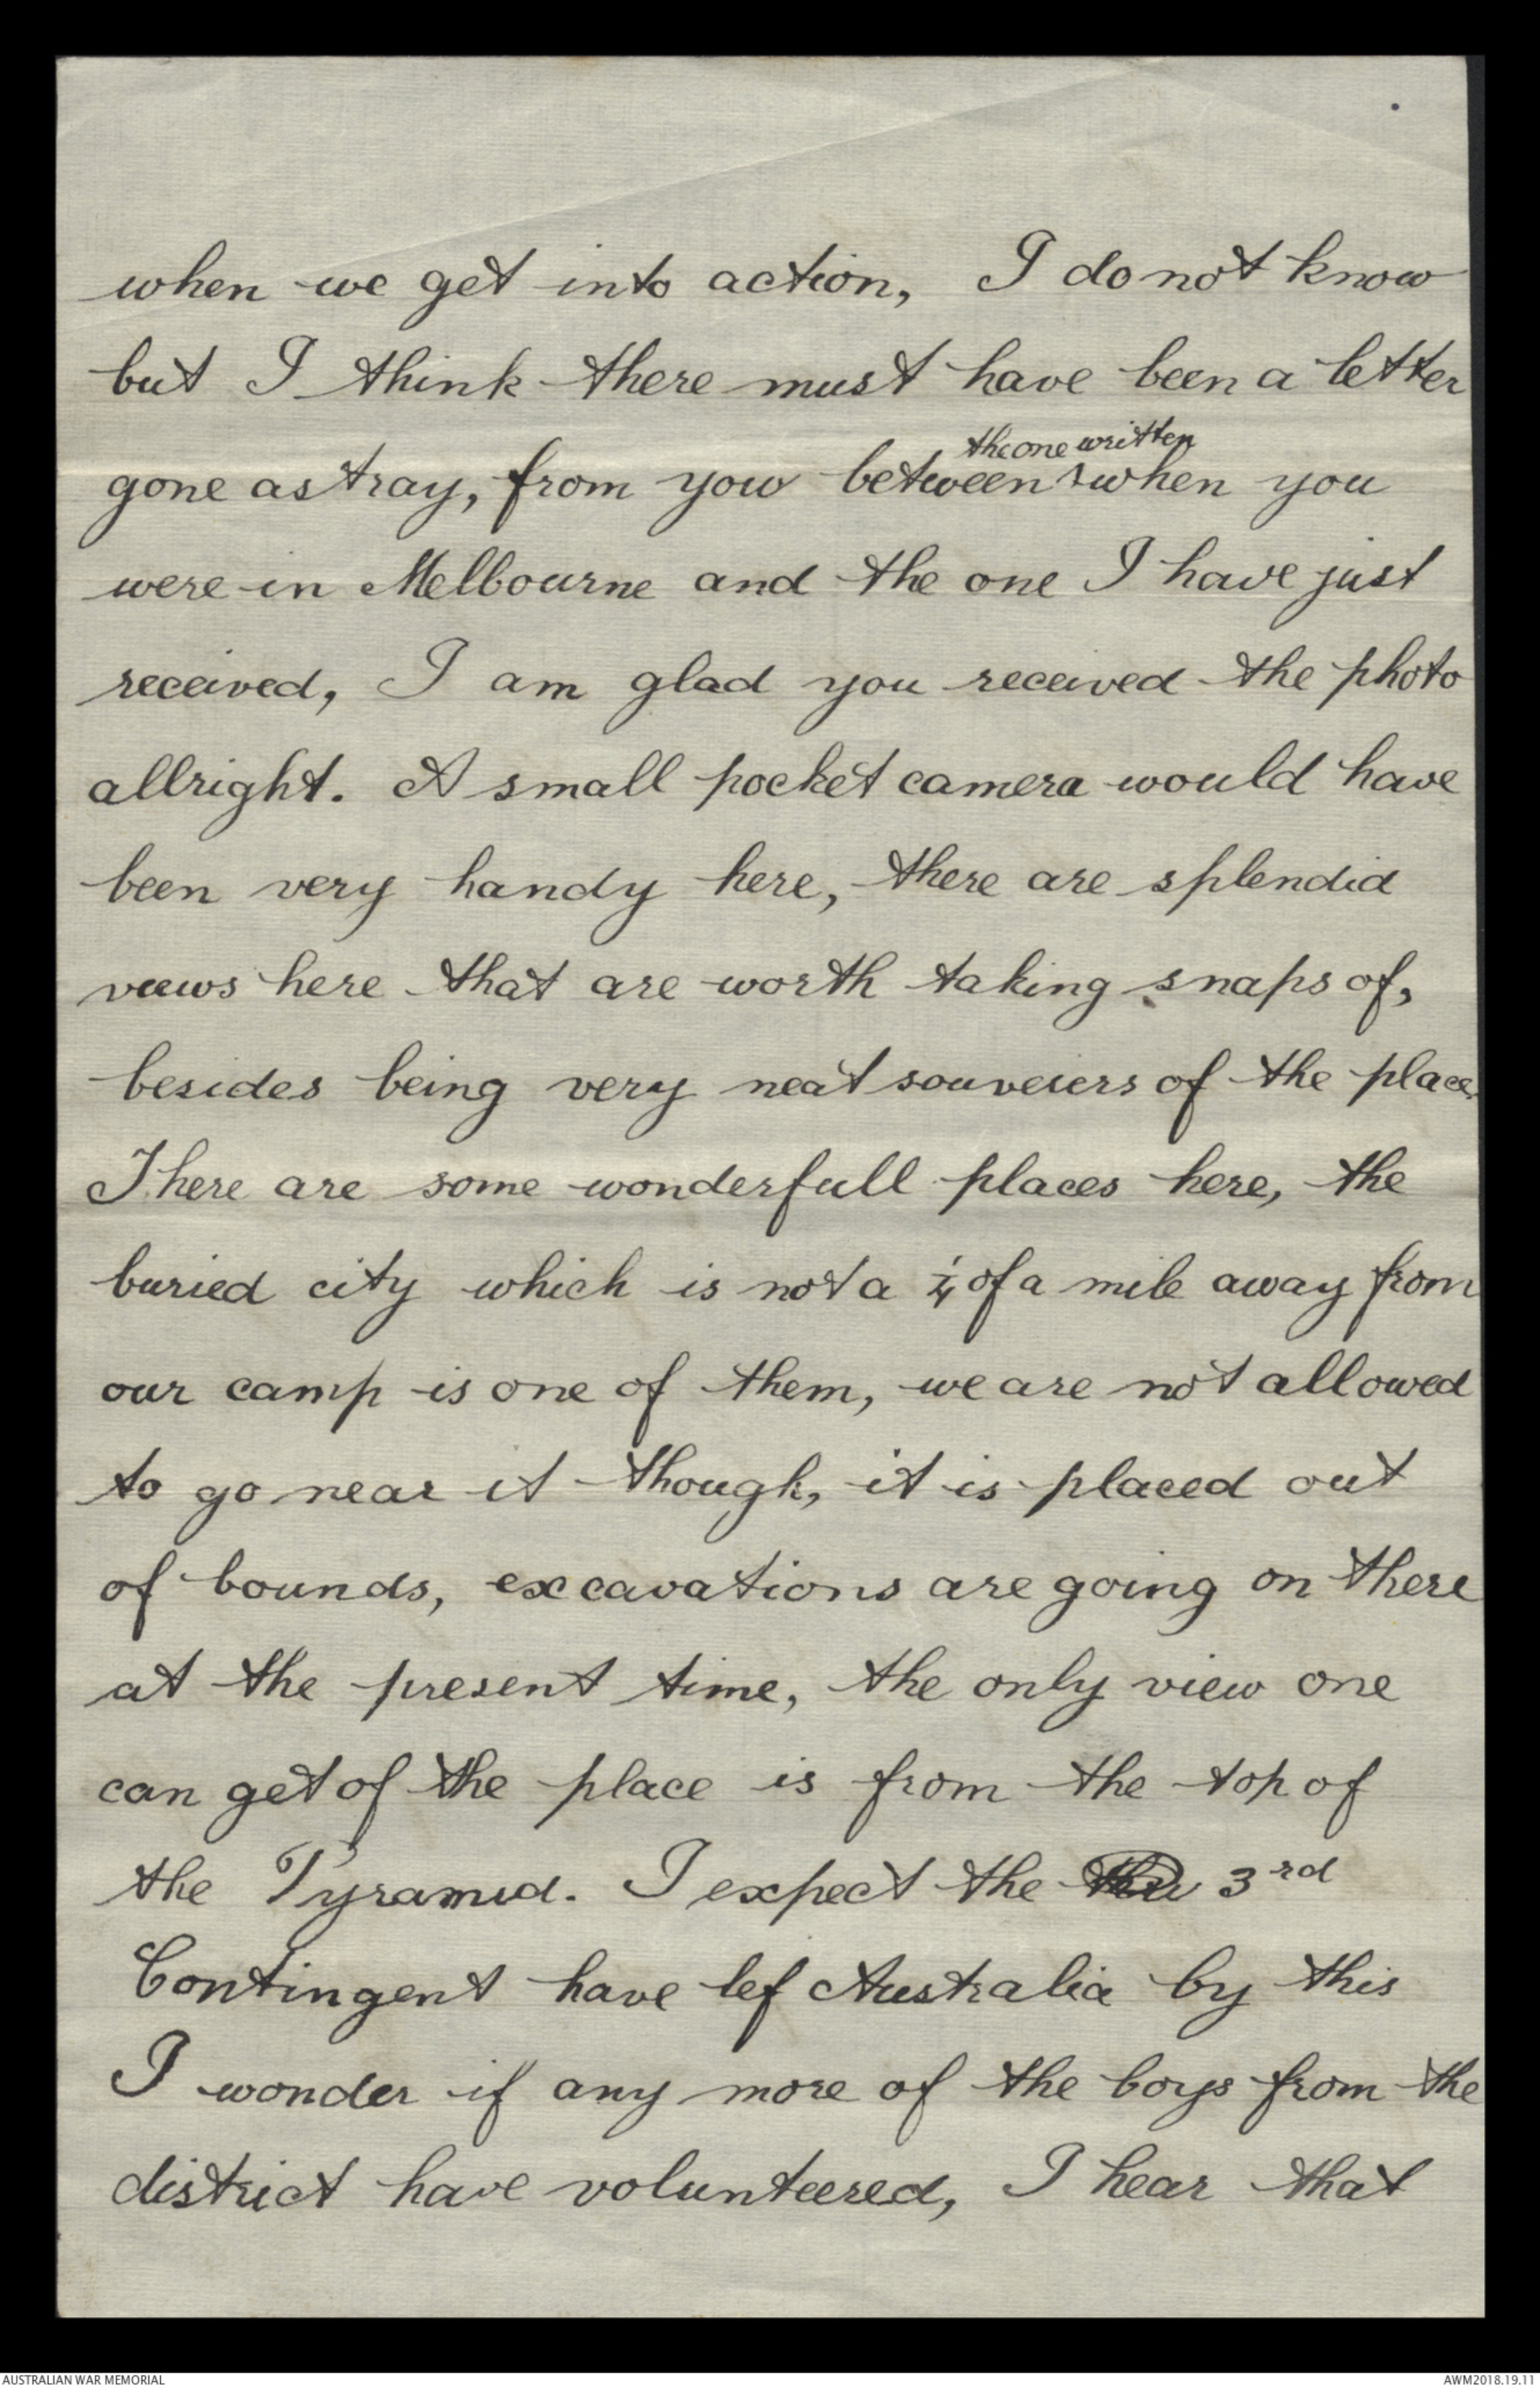 when we get into action, I do not know
but I think there must have been a letter
gone astray, from you between the one written when you
were in Melbourne and the one I have just
received, I am glad you received the photo
allright. A small pocket camera would have
been very handy here, there are splendid
views here that are worth taking snaps of,
besides being very neat souveiers of the place.
There are some wonderfull places here, the
buried city which is not a 1/4 of a mile away from
our camp is one of them, we are not allowed
to go near it though, it is placed out
of bounds, excavations are going on there
at the present time, the only view one
can get of the place is from the top of
the Pyramid. I expect the 3rd
Contingent have lef Australia by this
I wonder if any more of the boys from the
district have volunteered, I hear that
AUSTRALIAN WAR MEMORIAL
AWM2018.19.11